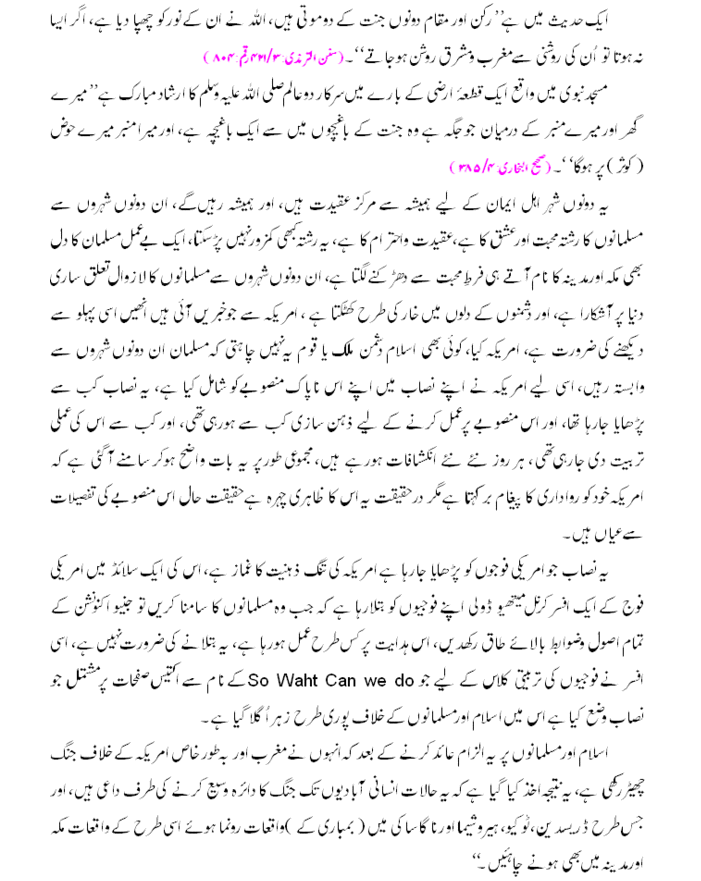 ایک حدیث میں ہے’’رکن اور مقام دونوں جنت کے دوموتی ہیں، اللہ نے ان کے نورکو چھپا دیا ہے، اگر ایسا
نہ ہوتا تو اُن کی روشنی سے مغرب ومشرق روشن ہوجاتے‘‘۔(سنن الترمذی:۴۲۱/۳،رقم:۸۰۴)
مسجد نبوی میں واقع ایک قطعۂ ارضی کے بارے میں سرکار دو عالم صلی اللہ علیہ وسلم کا ارشاد مبارک ہے’’میرے
گھر اور میرے منبر کے درمیان جو جگہ ہے وہ جنت کے باغیچوں میں سے ایک باغیچہ ہے، اور میرا منبر میرے حوض
(کوثر) پر ہوگا‘‘۔(صحیح البخاری:۴۸۵/۴)
یہ دونوں شہر اہل ایمان کے لیے ہمیشہ سے مرکز عقیدت ہیں، اور ہمیشہ رہیں گے، ان دونوں شہروں سے
مسلمانوں کا رشتہ محبت اور عشق کا ہے،عقیدت واحترام کا ہے، یہ رشتہ کبھی کمزور نہیں پڑسکتا، ایک بے عمل مسلمان کا دل
بھی مکہ اور مدینہ کا نام آتے ہی فرط محبت سے دھڑکنے لگتا ہے، ان دونوں شہروں سے مسلمانوں کا لازوال تعلق ساری
دنیا پر آشکارا ہے، اور دشمنوں کے دلوں میں خار کی طرح کھٹکتا ہے، امریکہ سے جو خبریں آئی ہیں انھیں اسی پہلو سے
دیکھنے کی ضرورت ہے، امریکہ کیا، کوئی بھی اسلام دشمن ملک یا قوم یہ نہیں چاہتی کہ مسلمان ان دونوں شہروں سے
وابستہ رہیں، اسی لیے امریکہ نے اپنے نصاب میں اپنے اس ناپاک منصوبے کو شامل کیا ہے، یہ نصاب کب سے
پڑھایا جارہا تھا، اور اس منصوبے پر عمل کرنے کے لیے ذہن سازی کب سے ہورہی تھی، اور کب سے اس کی عملی
تربیت دی جارہی تھی، ہر روز نئے نئے انکشافات ہورہے ہیں، مجموعی طور پر یہ بات واضح ہوکر سامنے آگئی ہے کہ
امریکہ خود کو رواداری کا پیغام بر کہتا ہے مگر درحقیقت یہ اس کا ظاہری چہرہ ہے حقیقت حال اس منصوبے کی تفصیلات
سے عیاں ہیں۔
یہ نصاب جو امریکی فوجوں کو پڑھایا جارہا ہے امریکہ کی تنگ ذہنیت کا غماز ہے، اس کی ایک سلائڈ میں امریکی
فوج کے ایک افسر کرنل میتھیو ڈولی اپنے فوجیوں کو بتلا رہا ہے کہ جب وہ مسلمانوں کا سامنا کریں تو جنیوا کنونشن کے
تمام اصول وضوابط بالائے طاق رکھدیں، اس ہدایت پر کس طرح عمل ہورہا ہے، یہ بتلانے کی ضرورت نہیں ہے، اسی
افسر نے فوجیوں کی تربیتی کلاس کے لیے جو So Waht Can we do کے نام سے اکتیس صفحات پر مشتمل جو
نصاب وضع کیا ہے اس میں اسلام اور مسلمانوں کے خلاف پوری طرح زہر اُگلا گیا ہے۔
اسلام اور مسلمانوں پر یہ الزام عائد کرنے کے بعد کہ انہوں نے مغرب اور بہ طور خاص امریکہ کے خلاف جنگ
چھیڑ رکھی ہے، یہ نتیجہ اخذ کیا گیا ہے کہ یہ حالات انسانی آبادیوں تک جنگ کا دائرہ وسیع کرنے کی طرف داعی ہیں، اور
جس طرح ڈریسڈین، ٹوکیو، ہیروشیما اور ناگاساکی میں (بمباری کے) واقعات رونما ہوئے اسی طرح کے واقعات مکہ
اور مدینہ میں بھی ہونے چاہئیں۔‘‘